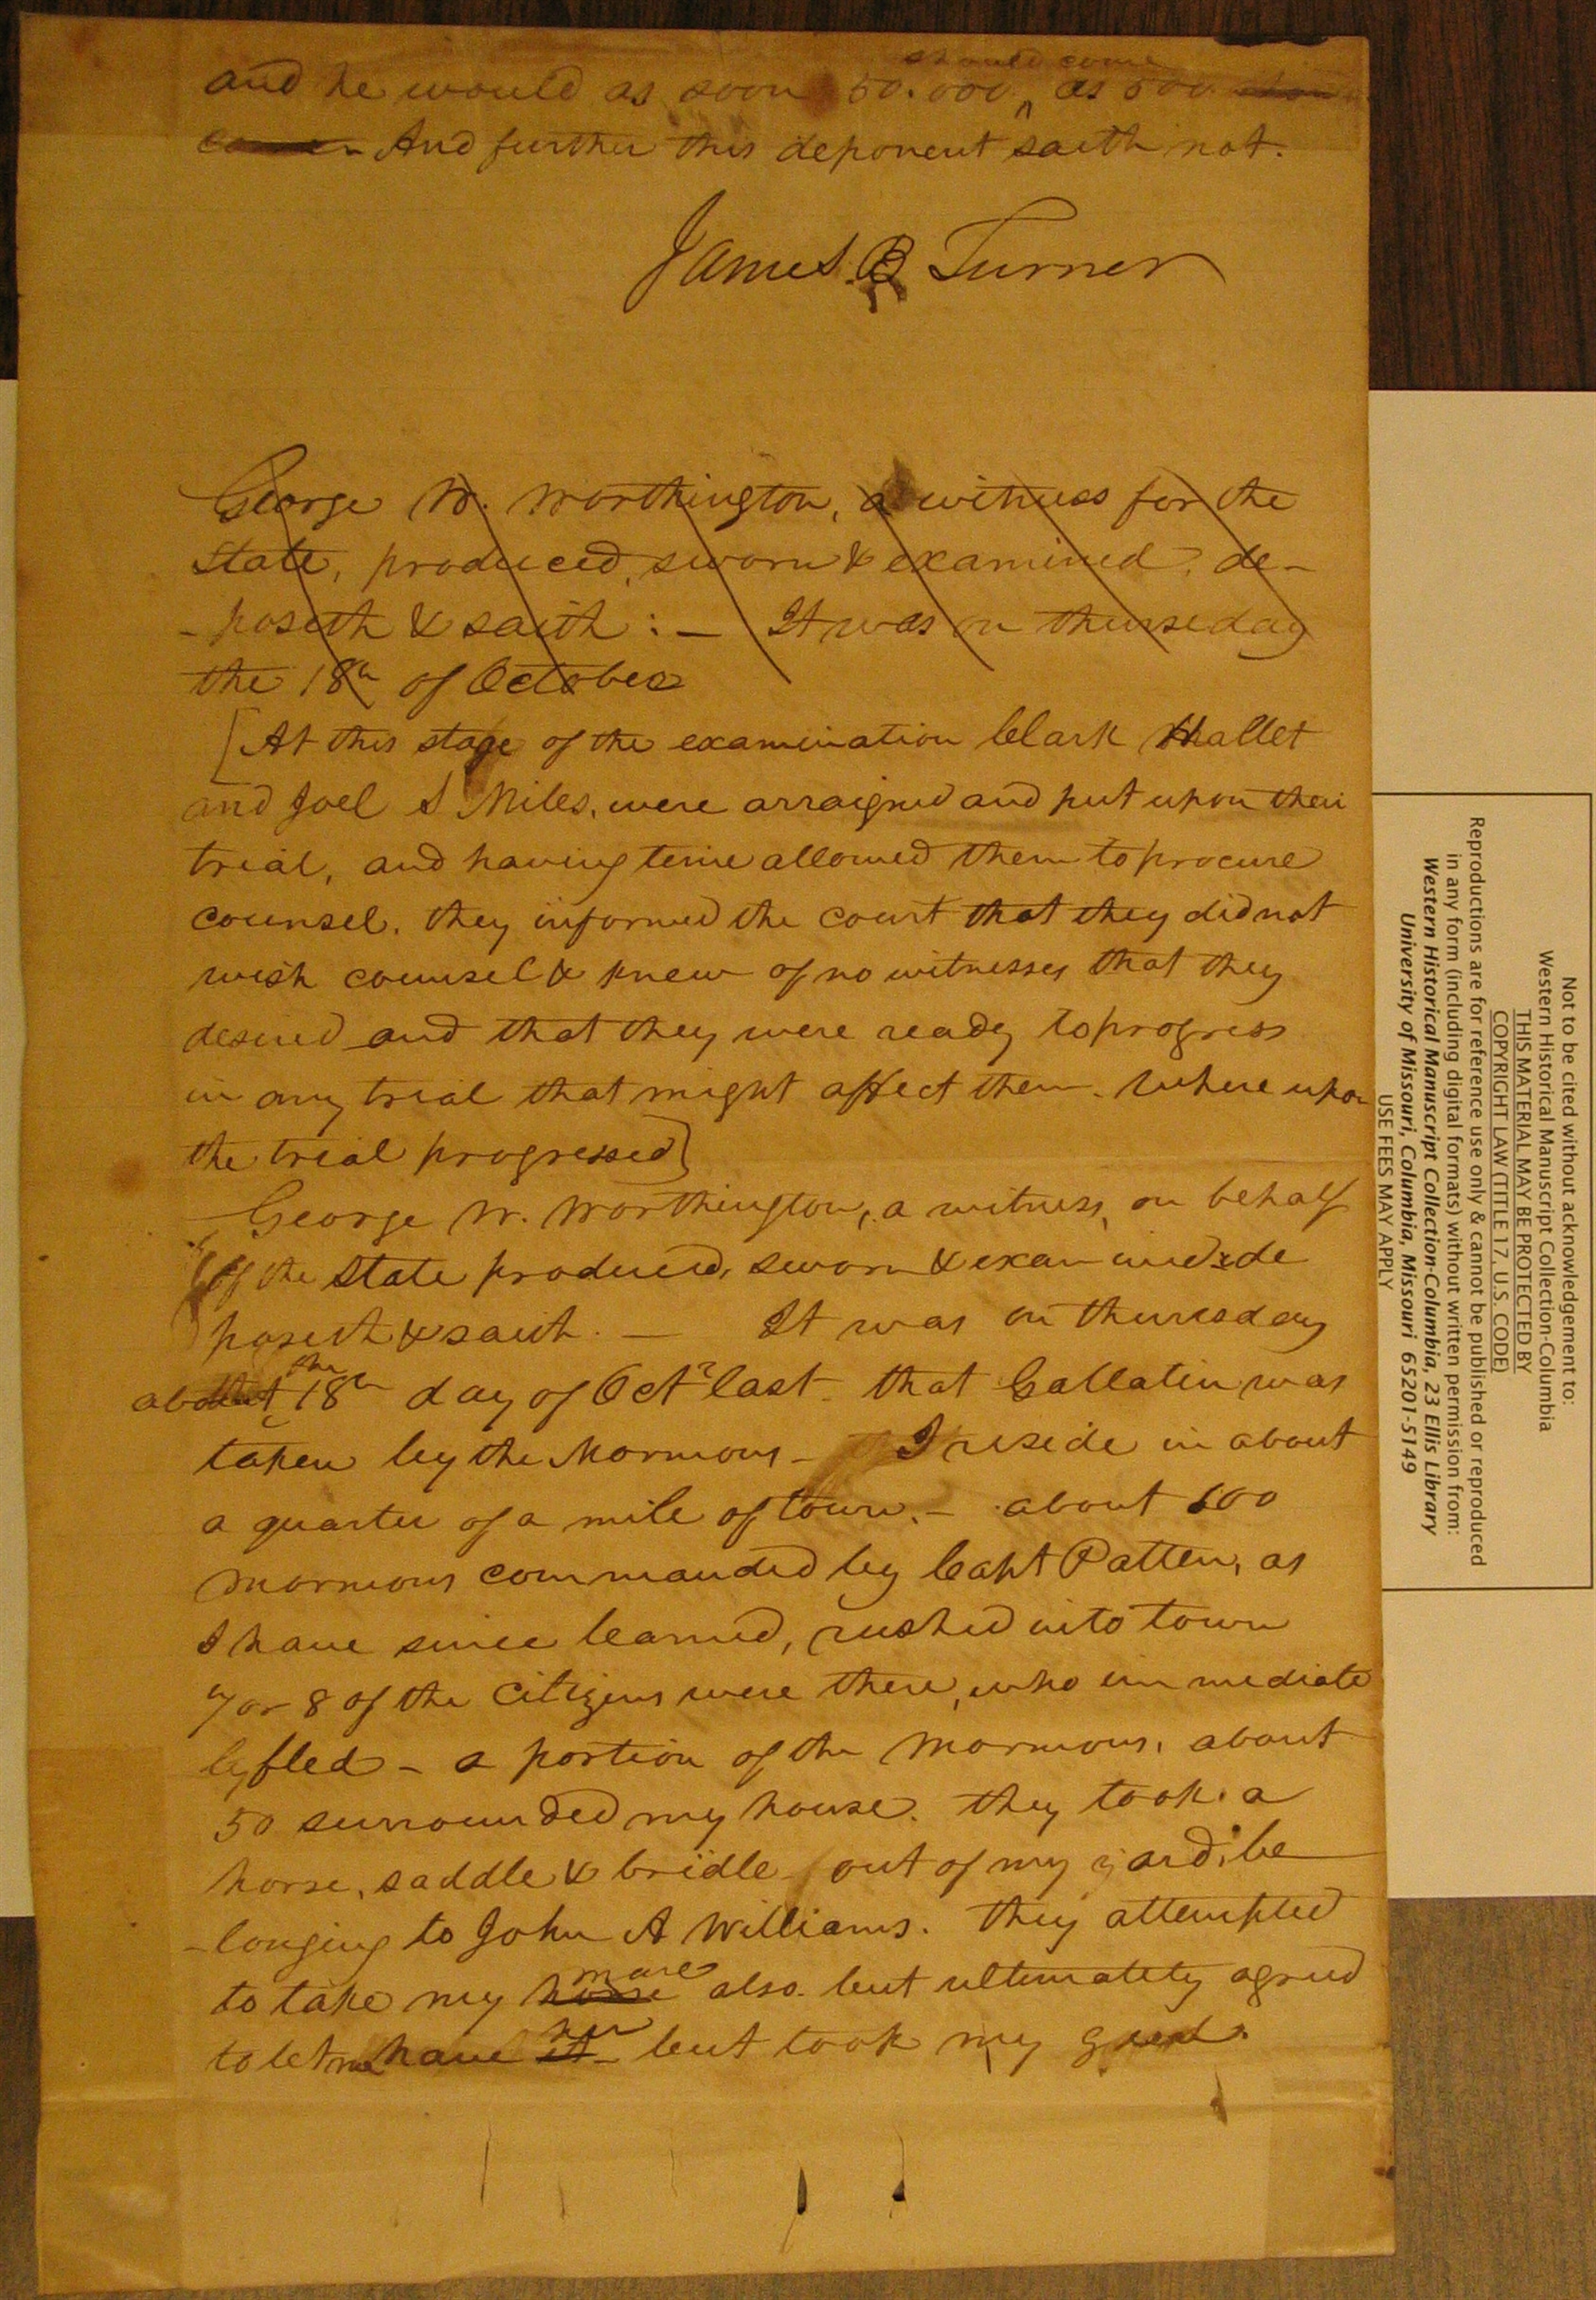 should come
and he would as soon 50.000 ^ as 500 
come - And further this deponent saith not.
James B Turner
George W. Worthington, a witness for the
State, produced, sworn & examined, de-
-poseth & saith : - It was on thurseday
the 18th of October
[At this stage of the examination Clark Hallet
and Joel S Miles, were arraigned and put upon their
trial, and having time allowed them to procure
counsel. they informed the court that they did not
wish counsel & knew of no witnesses that they
desired and that they were ready to progress
in any trial that might affect them. Where upon
the trial progressed]
George W. Worthington, a witness, on behalf
of the State produced, sworn & examined, de
poseth & saith. - It was on thurseday
the
about ^ 18th day of Octr last that Gallatin was
taken by the Mormons - I reside in about
a quarter of a mile of town. - about 100
Mormons commanded by Capt Patten, as
I have since learned, rushed into town
7 or 8 of the Citizens were there, who immediate
ly fled - a portion of the Mormons, about
50 surrounded my house. they took a
horse, saddle & bridle out of my yard, be
-longing to John A Williams. They attempted
mare
to take my horse also. but ultimately agreed
her
to let me have it - but took my gun.
Not to be cited without acknowledgement to:
Western Historical Manuscript Collection-Columbia
THIS MATERIAL MAY BE PROTECTED BY
COPYRIGHT LAW (TITLE 17, U.S. CODE)
Reproductions are for reference use only & cannot be published or reproduced
in any form (including digital formats) without written permission from:
Western Historical Manuscript Collection-Columbia, 23 Ellis Library
University of Missouri, Columbia, Missouri 65201-5149
USE FEES MAY APPLY